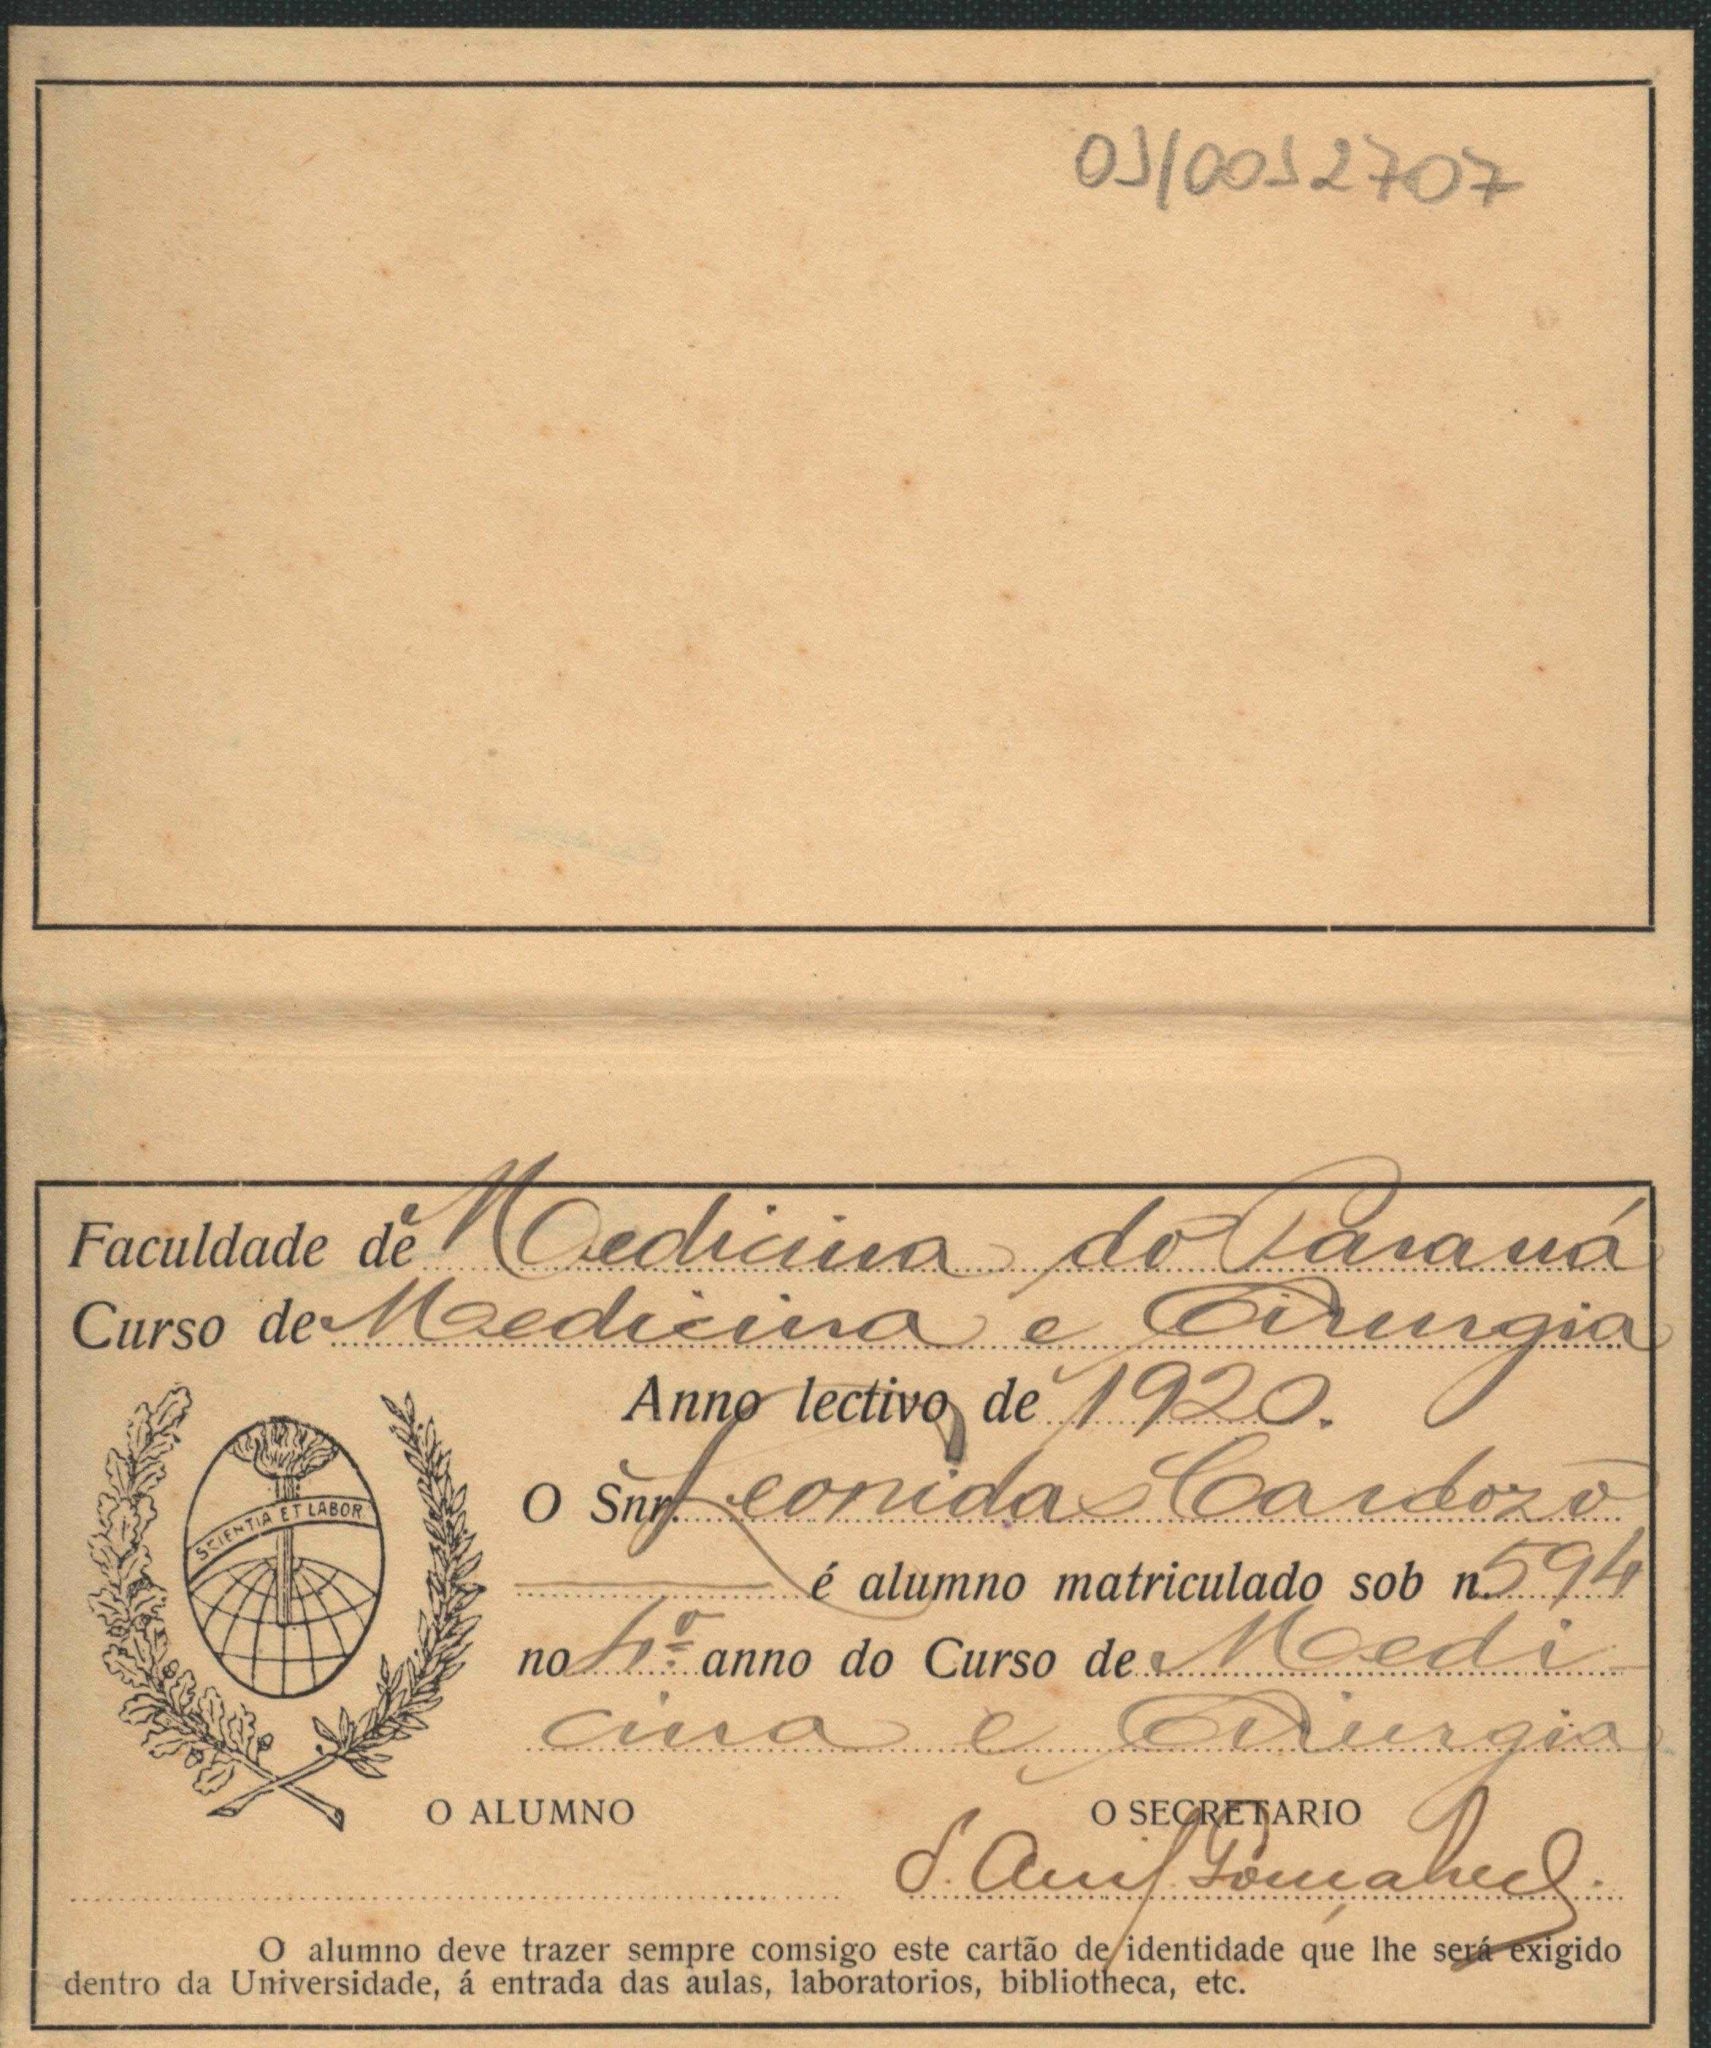 01/0012707
Faculdade de Medicina do Paraná
Curso de Medicina e Cirurgia
Anno lectivo de 1920.
SCIENTIA ET LABOR
O Snr. Leonidas Cardozo
é alumno matriculado sob n. 594
no 4º anno do Curso de Medi-
cina e Cirurgia
O ALUMNO O SECRETARIO
O alumno deve trazer sempre comsigo este cartão de identidade que lhe será exigido
dentro da Universidade, á entrada das aulas, laboratorios, bibliotheca, etc.